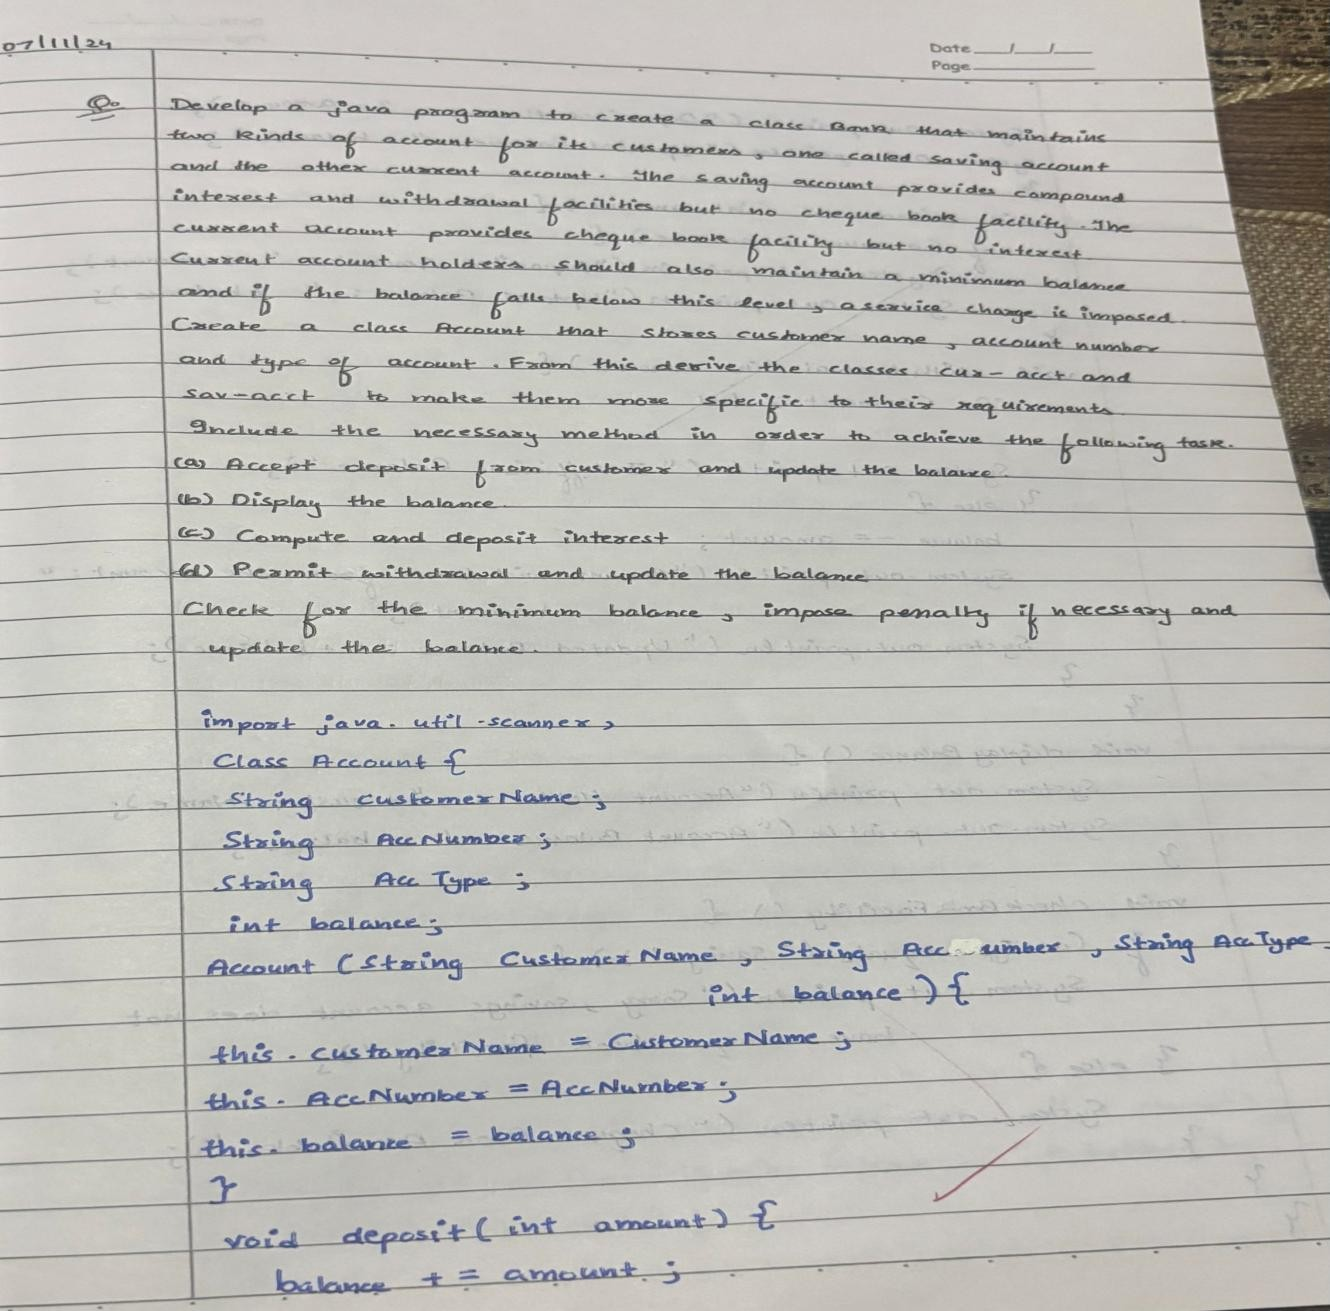 07/11/24
Date __/__/__
Page
Q. Develop a java program to create a class Bank that maintains
two kinds of account for its customers, one called saving account
and the other current account. The saving account provides compound
interest and withdrawal facilities but no cheque book facility. The
current account provides cheque book facility but no interest
Current account holders should also maintain a minimum balance
and if the balance falls below this level, a service charge is imposed.
Create a class Account that stores customer name, account number
and type of account. From this derive the classes cur-acct and
sav-acct to make them more specific to their requirements.
Include the necessary method in order to achieve the following task.
(a) Accept deposit from customer and update the balance.
(b) Display the balance.
(c) Compute and deposit interest
(d) Permit withdrawal and update the balance
Check for the minimum balance, impose penalty if necessary and
update the balance.
import java.util.scanner,
Class Account {
String customerName;
String AccNumber;
String Acc Type;
int balance;
Account (String CustomerName, String Acc umber, String AccType
int balance) {
this.customerName = CustomerName;
this.AccNumber = AccNumber;
this.balance = balance;
}
void deposit(int amount) {
balance += amount;